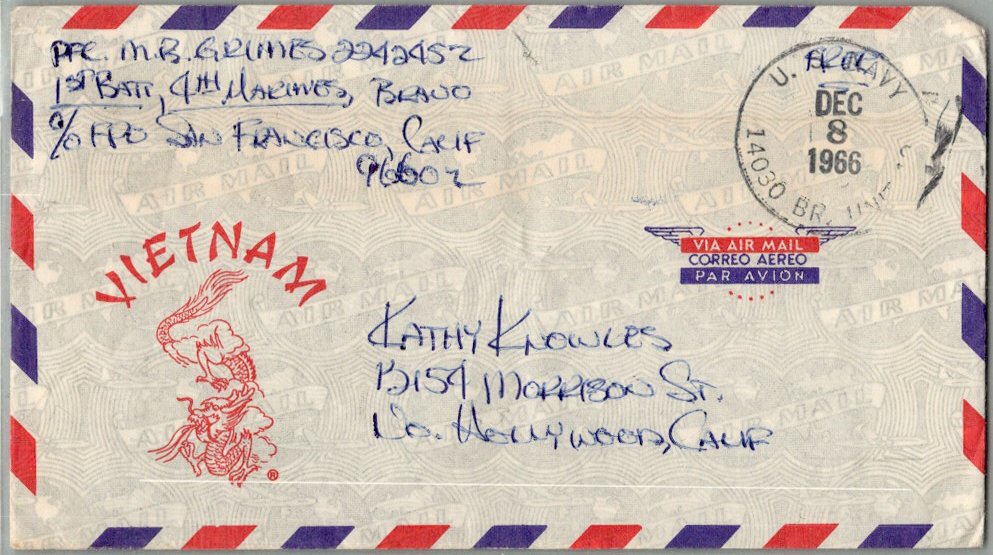 PFC. M.B. GRIMES 2242452
1ST BATT, 4TH MARINES, BRAVO
c/o FPO SAN FRANCISCO, CALIF
96602
FREE
U. NAVY
DEC
8
1966
14030 BR. UNIT
VIETNAM
®
VIA AIR MAIL
CORREO AEREO
PAR AVION
KATHY KNOWLES
13154 MORRISON ST.
NO. HOLLYWOOD, CALIF
AIR MAIL